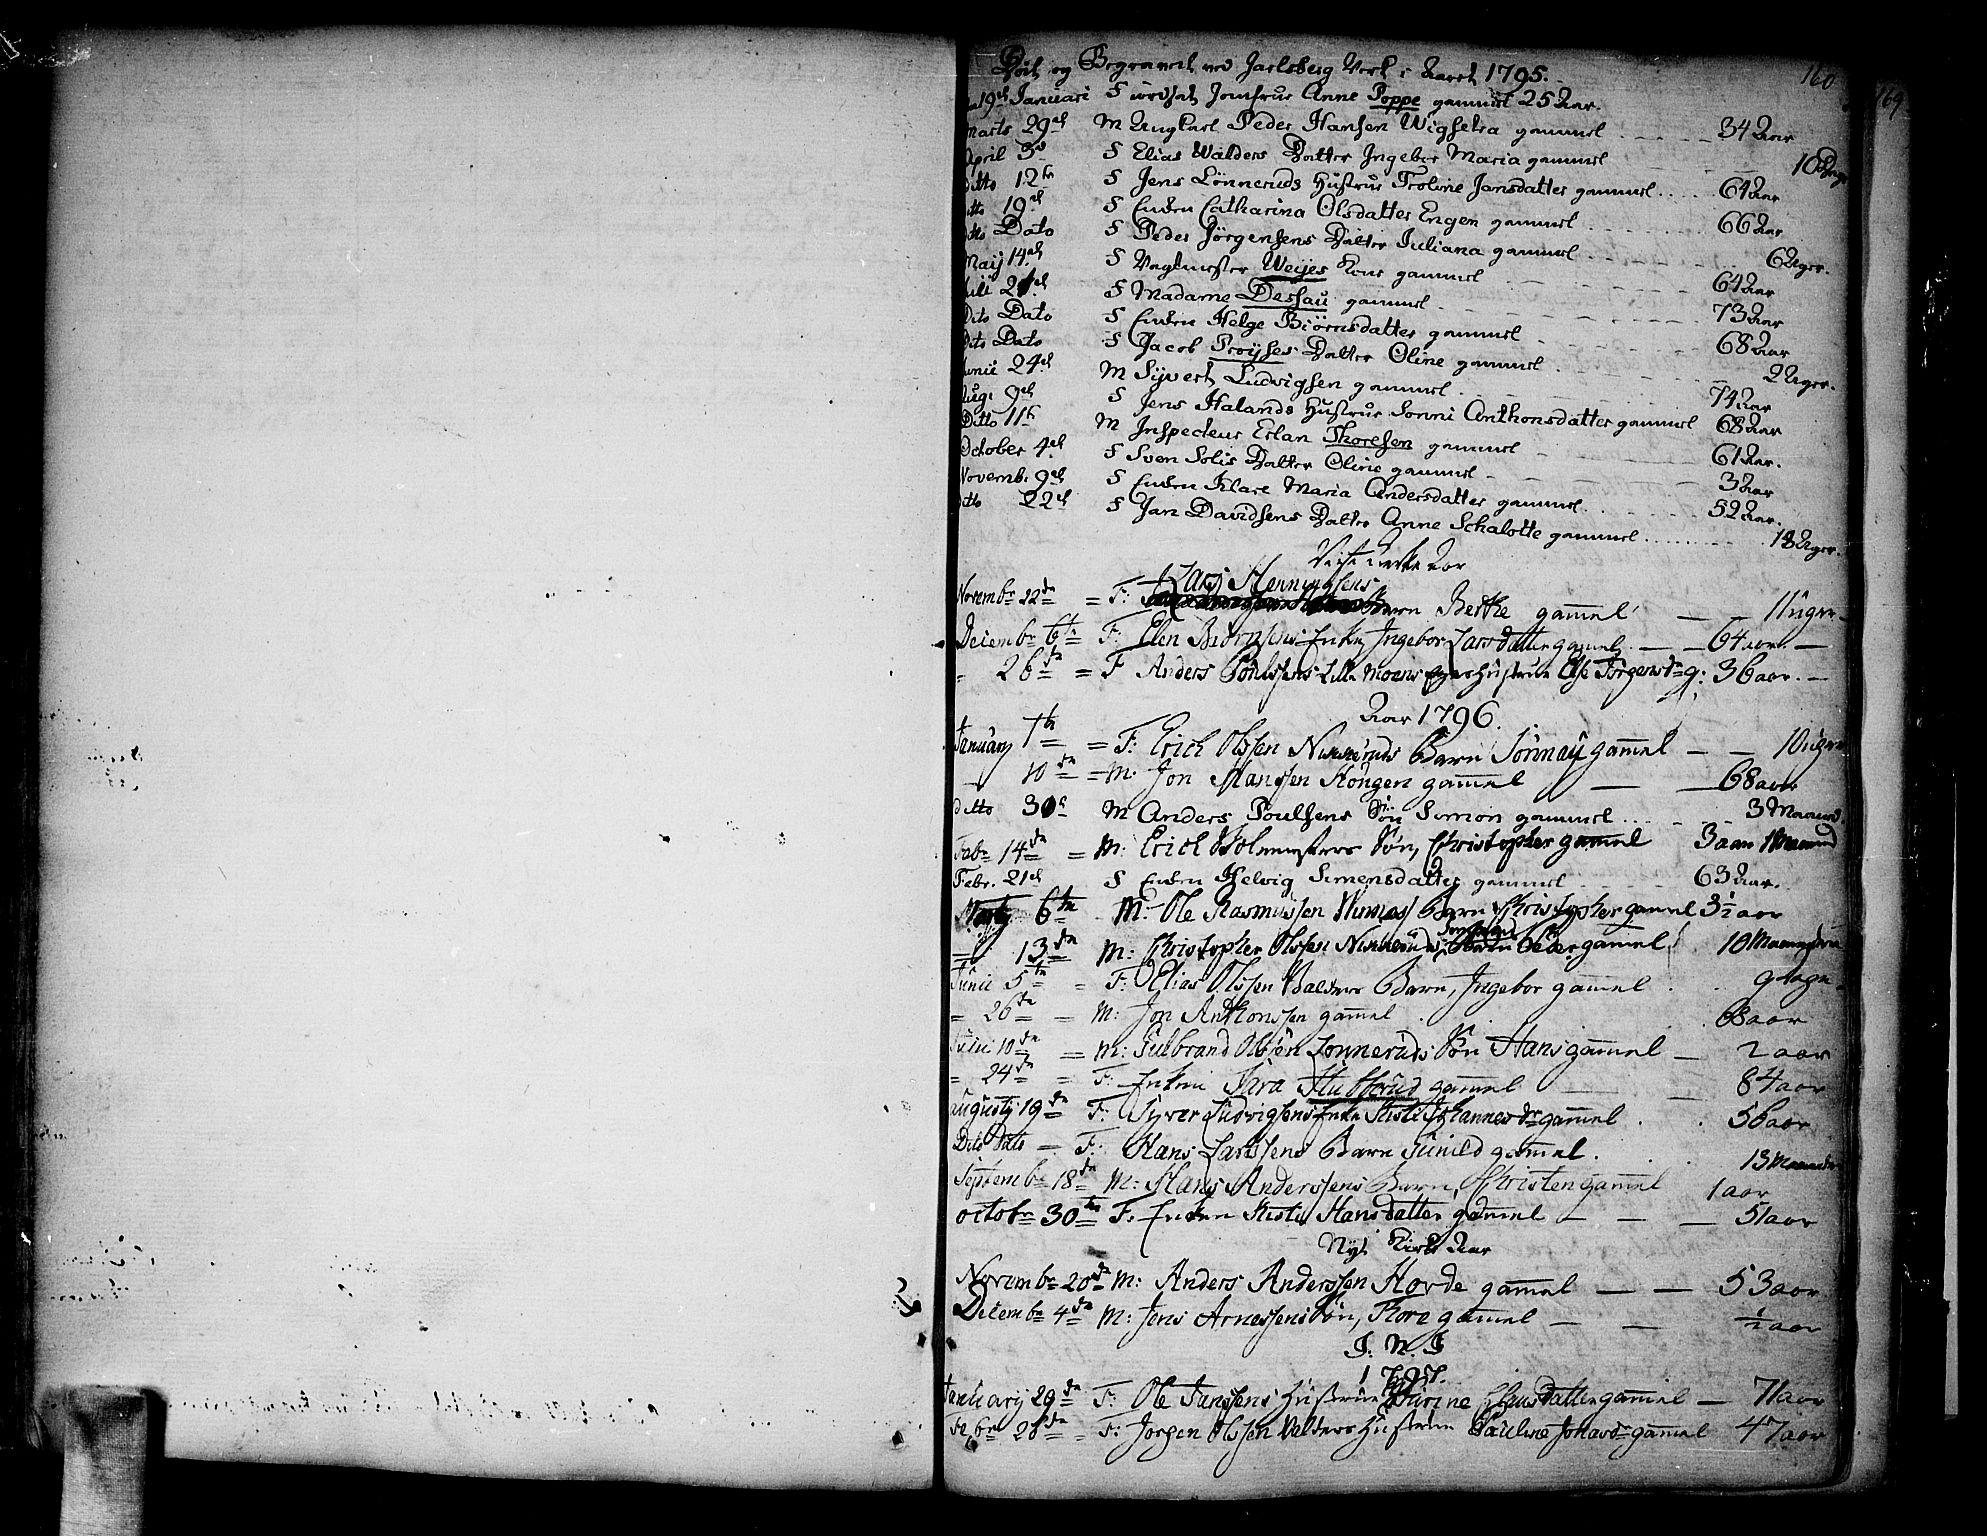 Død og Begravet ved Jarlsberg Verk i Aaret 1795. 160 169
19de Januari F Jomfrue Anne Poppe gammel 25 Aar.
Marts 29de M Ungkarl Peder Hansen Wigsetra gammel 34 Aar
April 3d F Elias Walders Datter Ingebor Maria gammel 10 Dage
ditto 12te F Jens Lönneruds Hustrue Troline Jansdatter gammel 64 Aar
ditto 19de F Enken Catharina Olsdatter Engen gammel 66 Aar
ditto Dato F Peder Jörgensens Datter Juliana gammel 6 Uger.
Maij 14de F Vagtmester Weijes Kone gammel 64 Aar
F Madame Dessau gammel 73 Aar
Dito Dato F Enken Helge Biörnsdatter gammel 68 Aar
Dito Dato F Jacob Proijses Datter Oline gammel 2 Uger.
Junii 24de M Sijvert Ludvigsen gammel 74 Aar
Aug: 9de F Jens Halands Hustrue Sonni Anthonsdatter gammel 68 Aar
Ditto 11te M Inspecteur Erlan Thoresen gammel 61 Aar.
October 4de F Sven Solis Datter Oline gammel 3 Aar
Novemb: 9de F Enken Klare Maria Andersdatter gammel 52 Aar.
ditto 22de F Jan Davidsens Datter Anne Schalotte gammel 18 Uger.
Kirke Aar
Lars Henningsens
Novembr 22de = F: Barn Berthe gammel 11 uger
Decembr 6te F: Elen Biörnsens Enke Ingebor Larsdatter gammel 64 aar
" 26de = F Anders Povelsens Lille Moens Hustrue Else Jörgensdr g: 36 aar.
Aar 1796.
January 7te = F: Erich Olssen Nurseruds Barn gammel 10 uger
10de = M: Jon Hanssen Kongen gammel 68 aar
ditto 30te M Anders Poulsens Sön Simon gammel 3 Maaned
Febr 14de = M: Erich Sön, Christopher gammel 3 aar 1 Maaned
Febr. 21de F Enken Helvig Simensdatter gammel 63 Aar.
Marty 6te M: Ole Rasmussen Barn Christopher gammel 3½ aar
= 13de M: Christopher Olssen Barn Peder gammel 10 Maaneder
Junii 5te = F: Elias Olssen Valders Barn, Ingebor gammel 9 dage
= 26de = M: Jon Anthonssen gammel 68 aar
Julii 10de = M: Gulbrand Olssen Lonneruds Sön Hans gammel 2 aar
= 24de = F: Enken Sara Stubberud gammel 84 aar
Augusty 19de F: Syver Ludvigsens Enke Kisti Johannesdr gammel 56 aar
Dito Dato = F: Hans Larssens Barn Gunild gammel 13 Maaneder
Septembr 18de M: Hans Anderssens Barn, Christen gammel 1 aar
Octobr 30te F: Enken Kisti Hansdatter gammel 51 aar
Nyt Kirke Aar
Novembr 20de M: Anders Anderssen Hovde gammel 53 aar
Decembr 4de M: Jens Arnessens Sön, Thore gammel ½ aar
I: N: I
1797.
January 29de F: Ole Janssens Hustrue Clausdatter gammel 71 aar
Febr 26de = F: Jorgen Olssen Valders Hustrue Pauline gammel 47 aar